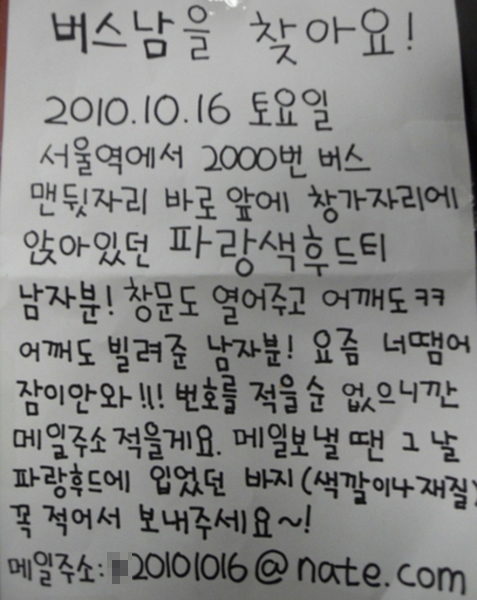 버스남을 찾아요!
2010.10.16 토요일
서울역에서 2000번 버스
맨뒷자리 바로 앞에 창가자리에
앉아있던 파랑색후드티
남자분! 창문도 열어주고 어깨도ㅋㅋ
어깨도 빌려준 남자분! 요즘 너땜어
잠이안와!!! 번호를 적을순 없으니깐
메일주소적을게요. 메일보낼 땐 그 날
파랑후드에 입었던 바지(색깔이나재질)
꼭 적어서 보내주세요~!
메일주소: 20101016@nate.com